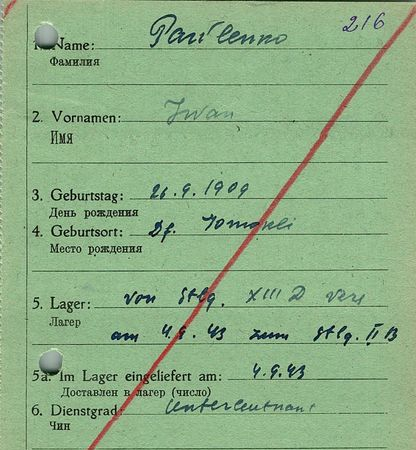 216
1. Name: Pawlenko
Фамилия
2. Vornamen: Iwan
Имя
3. Geburtstag: 26.9.1909
День рождения
4. Geburtsort: Df.
Место рождения
5. Lager: von Stlg. XIII D vers
Лагер
am 4.9.43 zum Stlg. II B
5a. Im Lager eingeliefert am: 4.9.43
Доставлен в лагер (число)
6. Dienstgrad: Unterleutnant
Чин